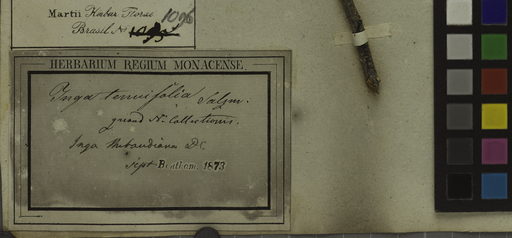 Martii Herbar. Florae
Brasil. No 1096
HERBARIUM REGIUM MONACENSE.
Inga tenuifolia Salzm.
quoad No. Collectionis.
Inga thibaudiana DC.
sept Bentham. 1873